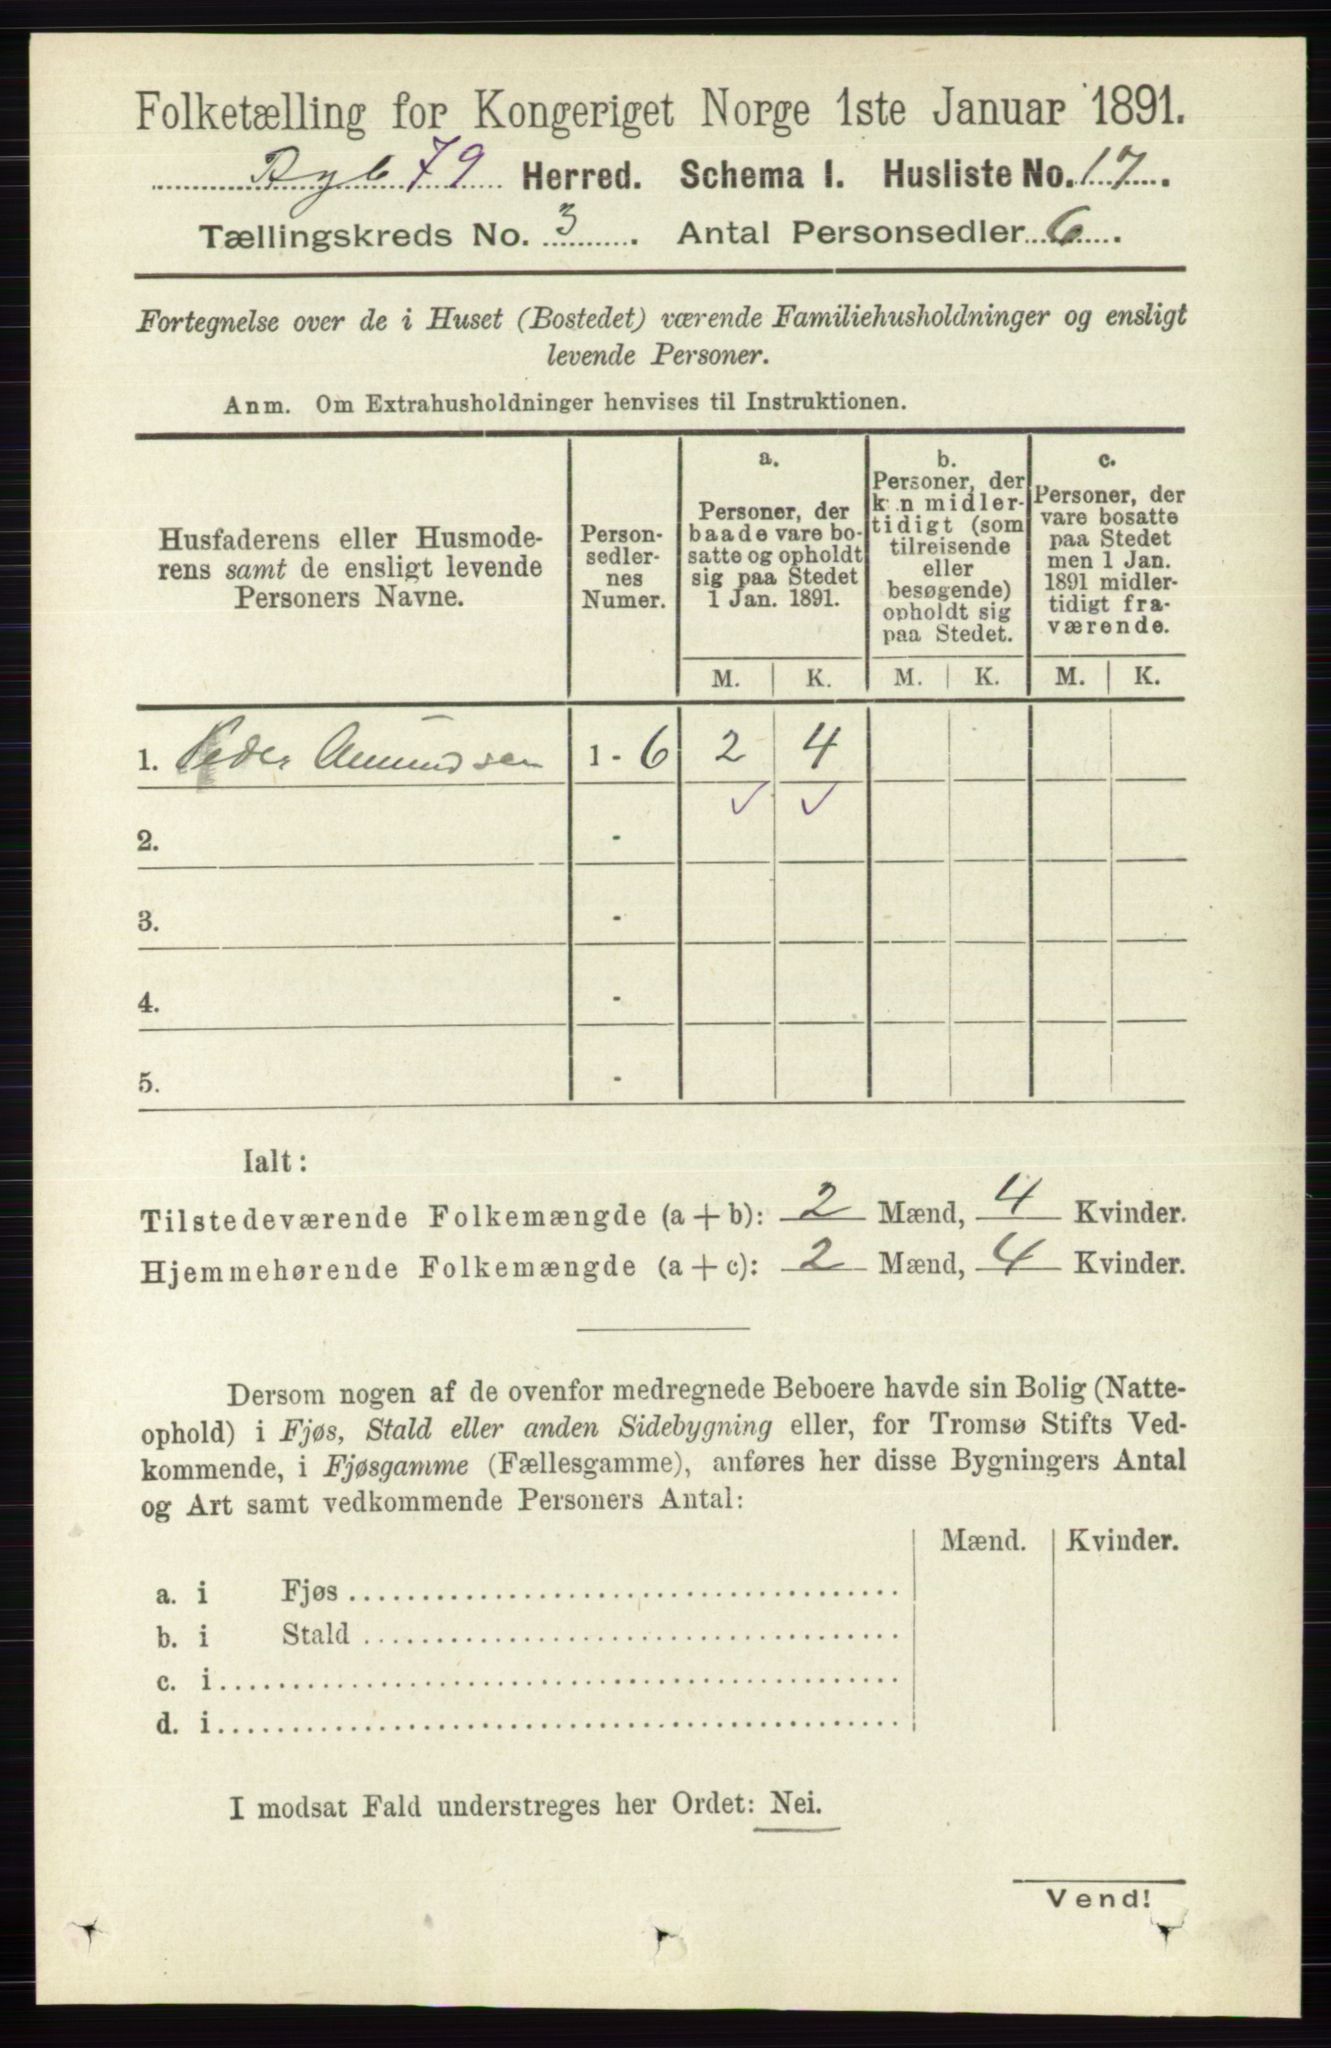 Folketælling for Kongeriget Norge 1ste Januar 1891.
79 Herred. Schema I. Husliste No. 17.
Tællingskreds No. 3. Antal Personsedler 6.
Fortegnelse over de i Huset (Bostedet) værende Familiehusholdninger og ensligt
levende Personer.
Anm. Om Extrahusholdninger henvises til Instruktionen.
Husfaderens eller Husmode-
rens samt de ensligt levende
Personers Navne.
Person-
sedler-
nes
Numer.
a.
Personer, der
baade vare bo-
satte og opholdt
sig paa Stedet
1 Jan. 1891.
b.
Personer, der
k n midler-
tidigt (som
tilreisende
eller
besøgende)
opholdt sig
paa Stedet.
c.
Personer, der
vare bosatte
paa Stedet
men 1 Jan.
1891 midler-
tidigt fra-
værende.
M. K. M. K. M. K.
1. Peder Amundsen 1 - 6 2 4
2. -
3. -
4. -
5. -
Ialt:
Tilstedeværende Folkemængde (a + b): 2 Mænd, 4 Kvinder.
Hjemmehørende Folkemængde (a + c): 2 Mænd, 4 Kvinder.
Dersom nogen af de ovenfor medregnede Beboere havde sin Bolig (Natte-
ophold) i Fjøs, Stald eller anden Sidebygning eller, for Tromsø Stifts Ved-
kommende, i Fjøsgamme (Fællesgamme), anføres her disse Bygningers Antal
og Art samt vedkommende Personers Antal:
Mænd. Kvinder.
a. i Fjøs
b. i Stald
c. i
d. i
I modsat Fald understreges her Ordet: Nei.
Vend!